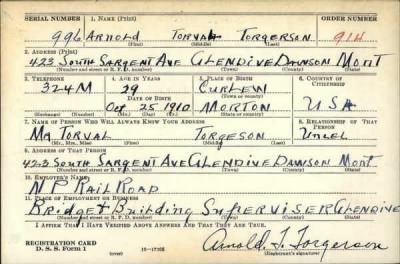 SERIAL NUMBER 1. NAME (Print) ORDER NUMBER
996 ARNOLD TORVAL TORGERSON 914
(First) (Middle) (Last)
2. ADDRESS (Print)
423 SOUTH SARGENT AVE GLENDIVE DAWSON MONT
(Number and street or R. F. D. number) (Town) (County) (State)
3. TELEPHONE 4. AGE IN YEARS 5. PLACE OF BIRTH 6. COUNTRY OF CITIZENSHIP
324M 29 CURLEW
DATE OF BIRTH (Town or county)
Oct 25 1910 MORTON USA
(Mo.) (Day) (Yr.) (State or country)
7. NAME OF PERSON WHO WILL ALWAYS KNOW YOUR ADDRESS 8. RELATIONSHIP OF THAT PERSON
MR TORVAL TORGESON UNCEL
(Mr., Mrs., Miss) (First) (Middle) (Last)
9. ADDRESS OF THAT PERSON
423 SOUTH SARGENT AVE GLENDIVE DAWSON MONT
(Number and street or R. F. D. number) (Town) (County) (State)
10. EMPLOYER'S NAME
N P RAIL ROAD
11. PLACE OF EMPLOYMENT OR BUSINESS
Bridge & Building SUPERVISER GLENDIVE
(Number and street or R. F. D. number) (Town) (County) (State)
I AFFIRM THAT I HAVE VERIFIED ABOVE ANSWERS AND THAT THEY ARE TRUE.
REGISTRATION CARD
D. S. S. Form 1 (over) Arnold T. Torgerson
(Registrant's signature)